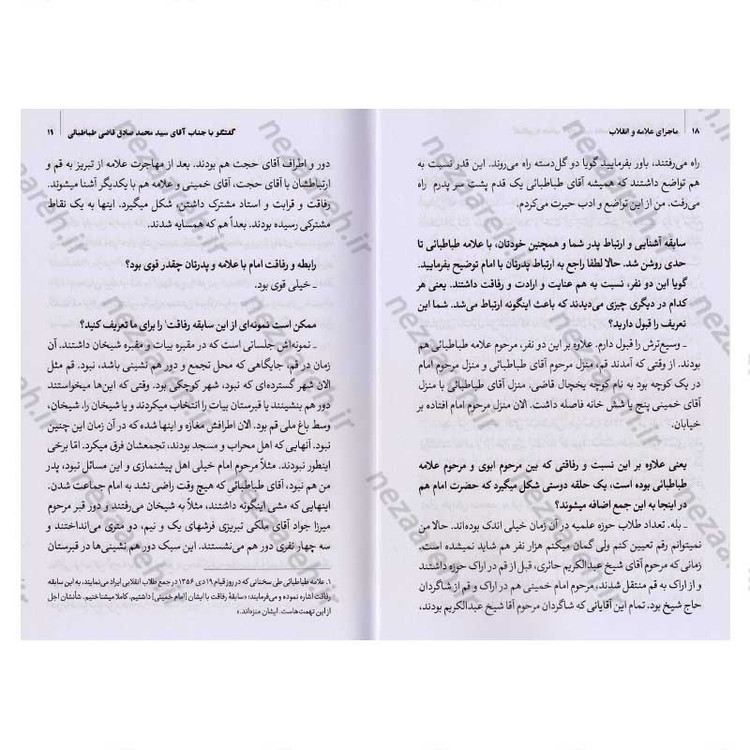 ۱۸ ماجرای علامه و انقلاب
راه می‌رفتند، باور بفرمایید گویا دو گل‌دسته راه می‌روند. این قدر نسبت به
هم تواضع داشتند که همیشه آقای طباطبائی یک قدم پشت سر پدرم راه
می‌رفت. من از این تواضع و ادب حیرت می‌کردم.
سابقه آشنایی و ارتباط پدر شما و همچنین خودتان، با علامه طباطبائی تا
حدی روشن شد. حالا لطفا راجع به ارتباط پدرتان با امام توضیح بفرمایید.
گویا این دو نفر، نسبت به هم عنایت و ارادت و رفاقت داشتند. یعنی هر
کدام در دیگری چیزی می‌دیدند که باعث اینگونه ارتباط می‌شد. شما این
تعریف را قبول دارید؟
ـ وسیع‌ترش را قبول دارم. علاوه بر این دو نفر، مرحوم علامه طباطبائی هم
بودند. از وقتی که آمدند قم، منزل مرحوم آقای طباطبائی و منزل مرحوم امام
در یک کوچه بود به نام کوچه یخچال قاضی. منزل آقای طباطبائی با منزل
آقای خمینی پنج یا شش خانه فاصله داشت. الان منزل مرحوم امام افتاده بر
خیابان.
یعنی علاوه بر این نسبت و رفاقتی که بین مرحوم ابوی و مرحوم علامه
طباطبائی بوده است، یک حلقه دوستی شکل میگیرد که حضرت امام هم
در اینجا به این جمع اضافه میشوند؟
ـ بله. تعداد طلاب حوزه علمیه در آن زمان خیلی اندک بوده‌اند. حالا من
نمیتوانم رقم تعیین کنم ولی گمان میکنم هزار نفر هم شاید نمیشده است.
زمانی که مرحوم آقای شیخ عبدالکریم حائری، قبل از قم در اراک حوزه داشتند
و از اراک به قم منتقل شدند، مرحوم امام خمینی هم در اراک و قم از شاگردان
حاج شیخ بود. تمام این آقایانی که شاگردان مرحوم آقا شیخ عبدالکریم بودند،
گفتگو با جناب آقای سید محمد صادق قاضی طباطبائی ۱۹
دور و اطراف آقای حجت هم بودند. بعد از مهاجرت علامه از تبریز به قم و
ارتباطشان با آقای حجت، آقای خمینی و علامه هم با یکدیگر آشنا میشوند.
رفاقت و قرابت و استاد مشترک داشتن، شکل میگیرد. اینها به یک نقاط
مشترکی رسیده بودند. بعداً هم که همسایه شدند.
رابطه و رفاقت امام با علامه و پدرتان چقدر قوی بود؟
ـ خیلی قوی بود.
ممکن است نمونه‌ای از این سابقه رفاقت۱ را برای ما تعریف کنید؟
ـ نمونه‌اش جلساتی است که در مقبره بیات و مقبره شیخان داشتند. آن
زمان در قم، جایگاهی که محل تجمع و دور هم نشینی باشد، نبود. قم مثل
الان شهر گسترده‌ای که نبود، شهر کوچکی بود. وقتی که این‌ها میخواستند
دور هم بنشینند یا قبرستان بیات را انتخاب میکردند و یا شیخان را. شیخان،
وسط باغ ملی قم بود. الان اطرافش مغازه و اینها شده که در آن زمان این چنین
نبود. آنهایی که اهل محراب و مسجد بودند، تجمعشان فرق میکرد. امّا برخی
اینطور نبودند. مثلاً مرحوم امام خیلی اهل پیشنمازی و این مسائل نبود، پدر
من هم نبود، آقای طباطبائی که هیچ وقت راضی نشد به امام جماعت شدن.
اینهایی که مشی اینگونه داشتند، مثلاً به شیخان می‌رفتند و دور قبر مرحوم
میرزا جواد آقای ملکی تبریزی فرشهای یک و نیم، دو متری می‌انداختند و
سه چهار نفری دور هم می‌نشستند. این سبک دور هم نشینی‌ها در قبرستان
۱. علامه طباطبائی طی سخنانی که در روز قیام ۱۹ دی ۱۳۵۶ در جمع طلاب انقلابی ایراد می‌نمایند، به این سابقه
رفاقت اشاره نموده و می‌فرمایند: «سابقهٔ رفاقت با ایشان [امام خمینی] داشتیم. کاملا میشناختیم. شأنشان اجل
از این تهمت‌هاست. ایشان منزه‌اند.»
nezaareh.ir